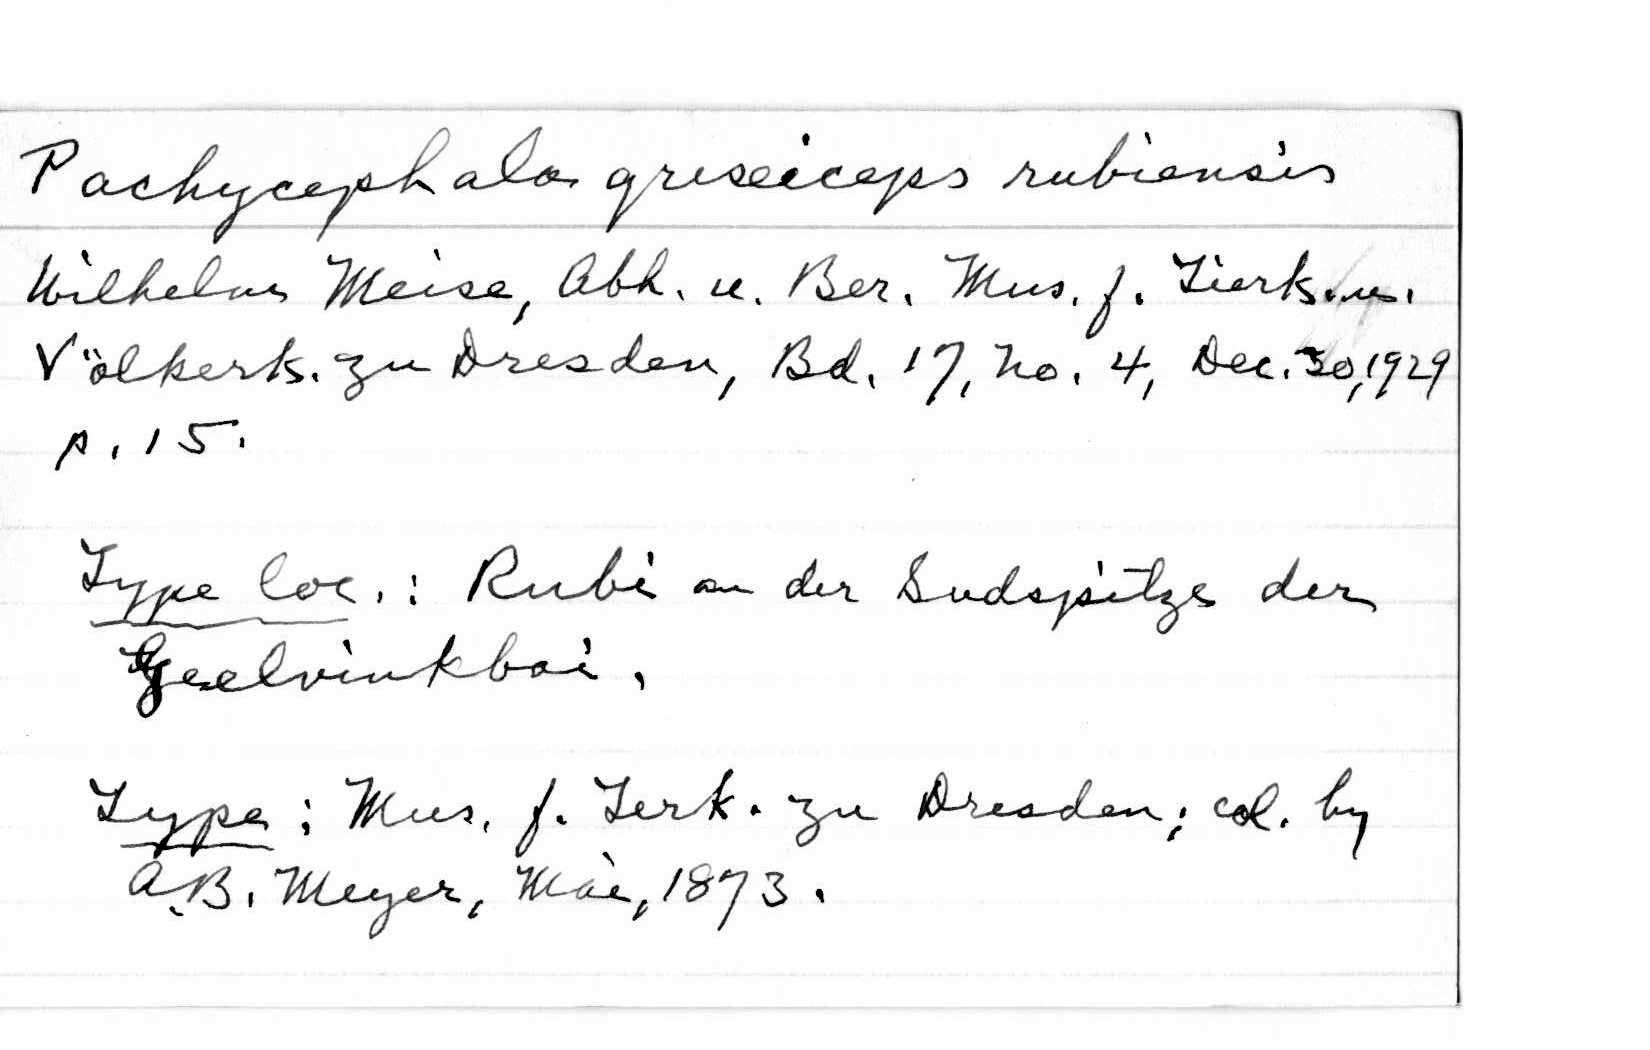 Pachycephala griseiceps rubiensis
Wilhelm Meise, Abh. u. Ber. Mus. f. Tierk. u.
Völkerk. zu Dresden, Bd. 17, no. 4, Dec. 30, 1929
p. 15.
Type loc.: Rubi an der Sudspitze der
Geelvinkbai.
Type: Mus. f. Terk. zu Dresden; col. by
A.B. Meyer, Mai, 1873.